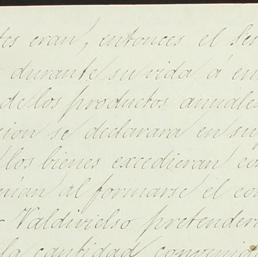 tes eran, entonces el Se
durante su vida á en
de los productos anuales
cion se declarara en su
los bienes excedieran co
nian al formarse el co
Valdivielso pretender
la cantidad convenid